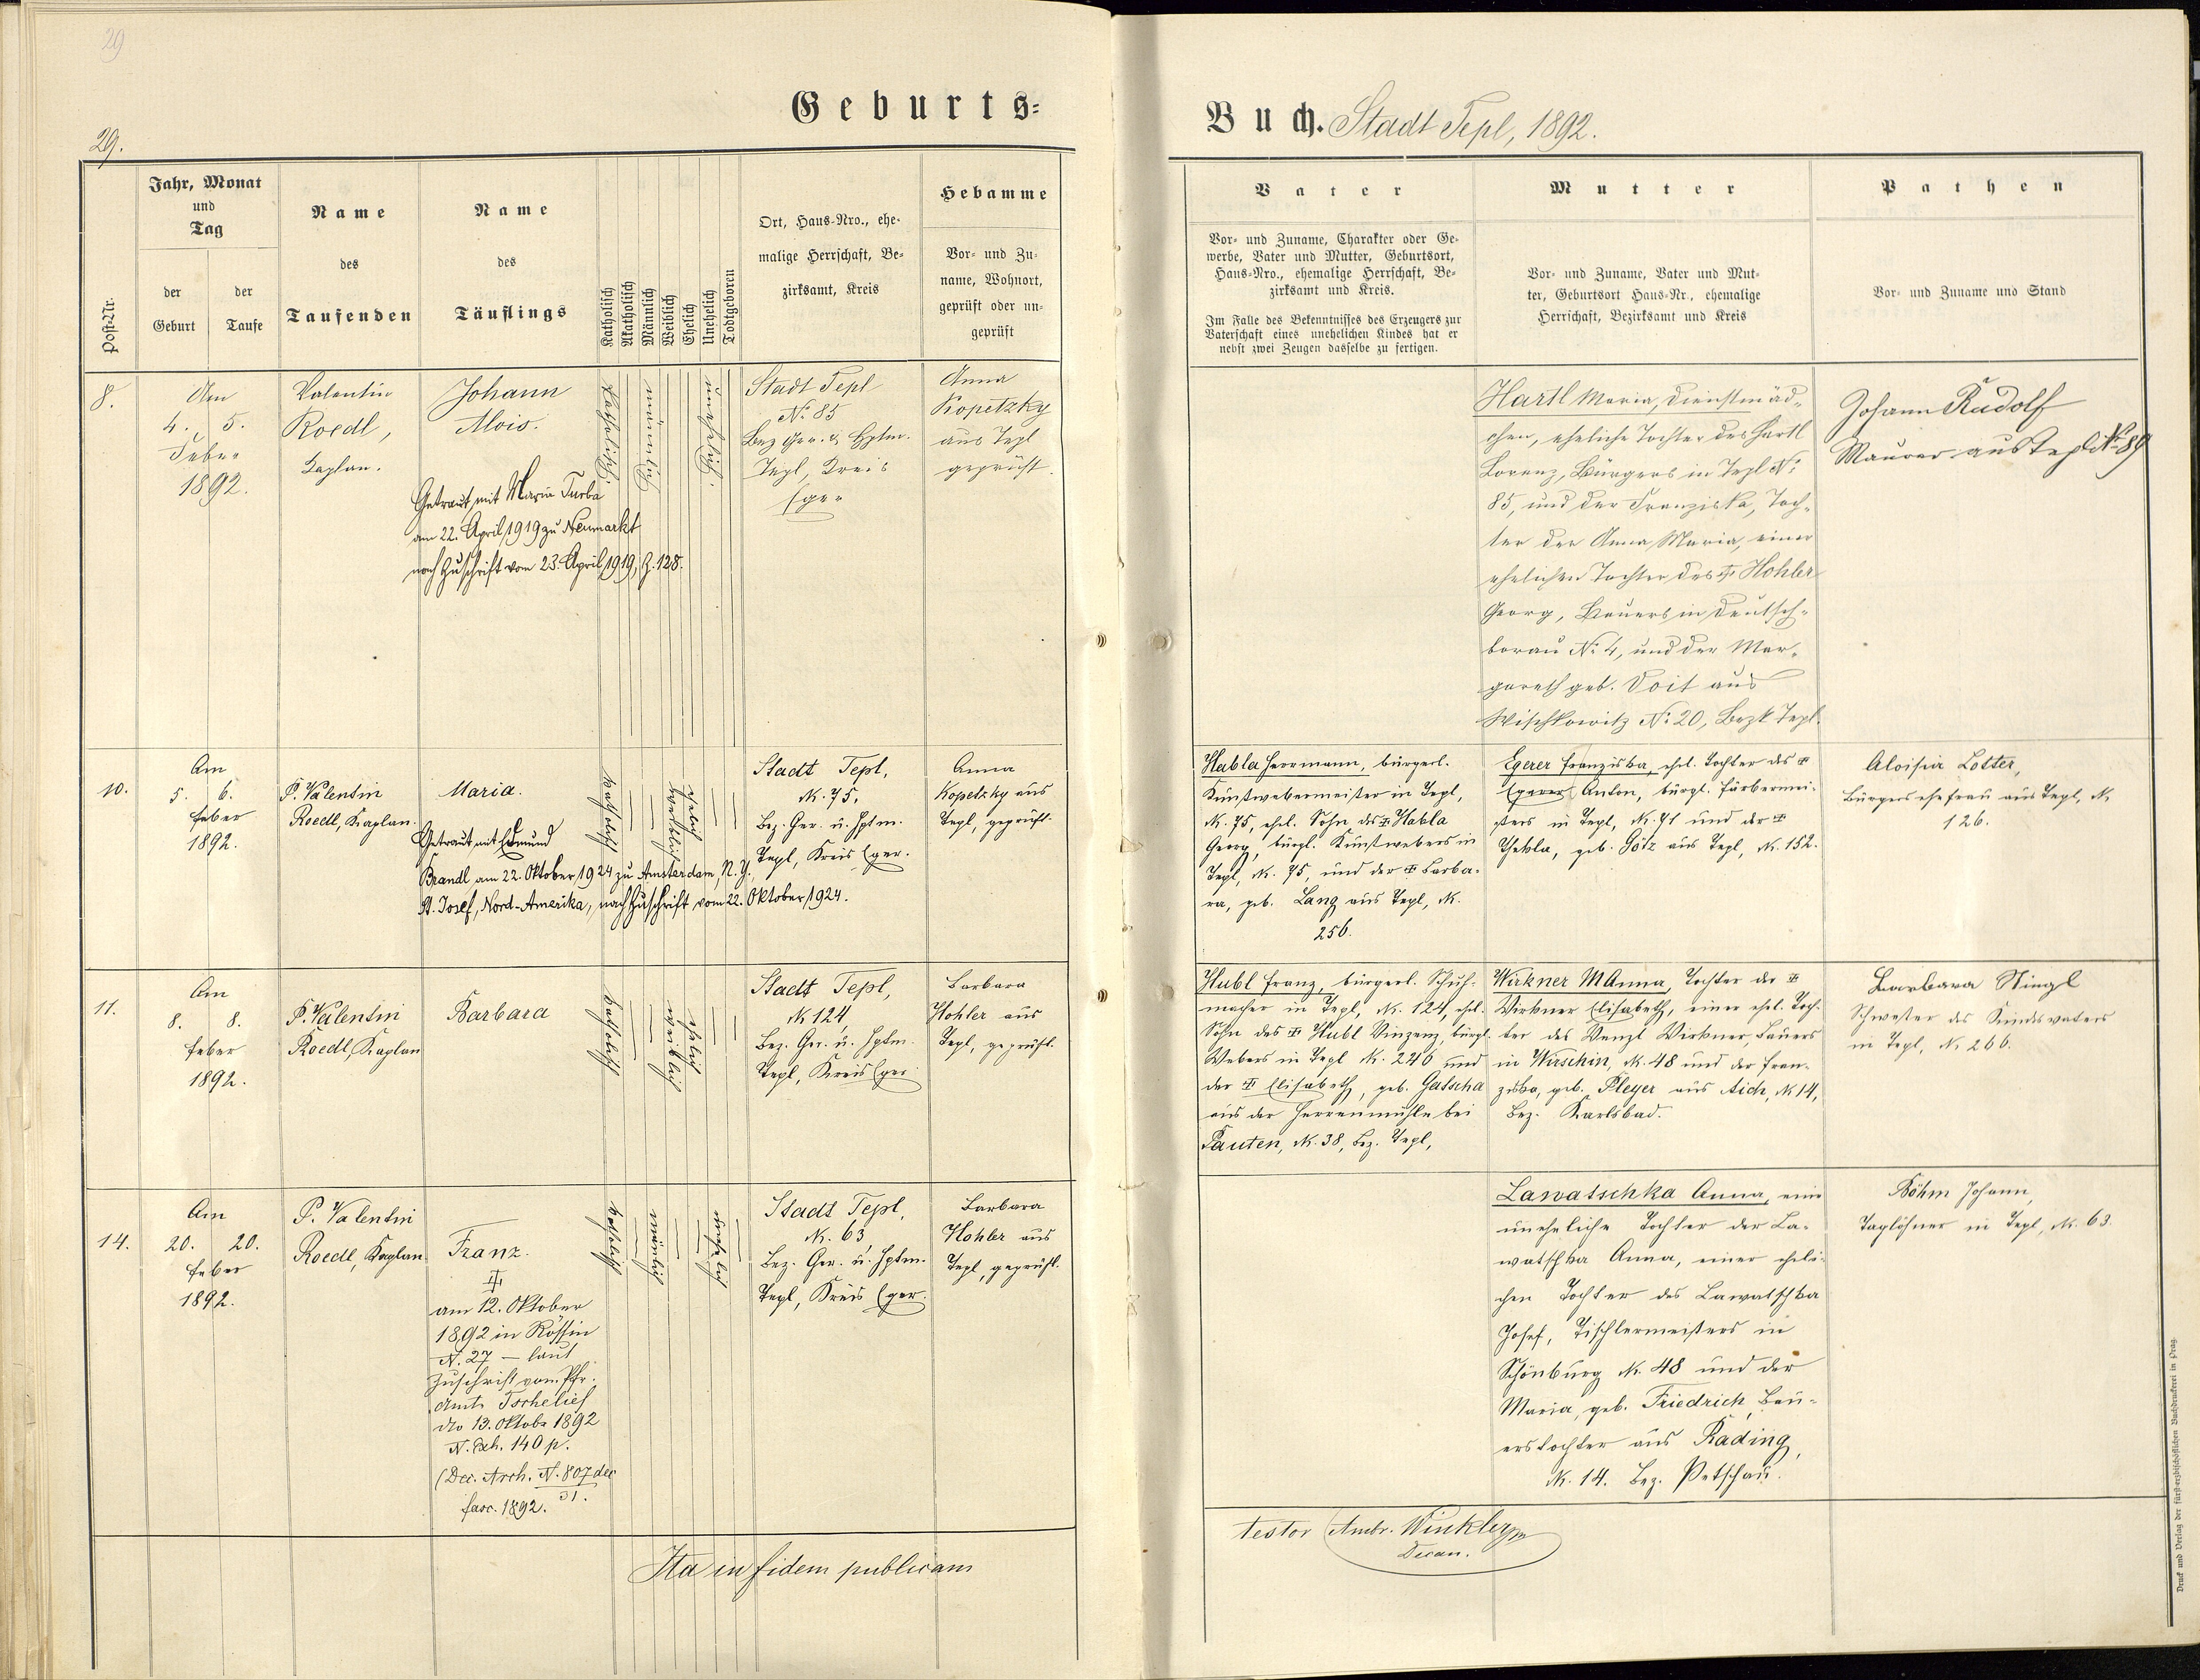 29
29.
Geburts=
Buch. Stadt Tepl, 1892.
Post-Nr.
Jahr, Monat
und
Tag
der
Geburt
der
Taufe
Name
des
Taufenden
Name
des
Täuflings
Katholisch
Akatholisch
Männlich
Weiblich
Ehelich
Unehelich
Todtgeboren
Ort, Haus-Nro., ehe-
malige Herrschaft, Be-
zirksamt, Kreis
Hebamme
Vor- und Zu-
name, Wohnort,
geprüft oder un-
geprüft
Vater
Vor- und Zuname, Charakter oder Ge-
werbe, Vater und Mutter, Geburtsort,
Haus-Nro., ehemalige Herrschaft, Be-
zirksamt und Kreis.
Im Falle des Bekenntnisses des Erzeugers zur
Vaterschaft eines unehelichen Kindes hat er
nebst zwei Zeugen dasselbe zu fertigen.
Mutter
Vor- und Zuname, Vater und Mut-
ter, Geburtsort Haus-Nr., ehemalige
Herrschaft, Bezirksamt und Kreis
Pathen
Vor- und Zuname und Stand
8.
Am
4. 5.
Feber
1892.
Valentin
Roedl,
Kaplan.
Johann
Alois.
Getraut mit Maria Turba
am 22. April 1919 zu Neumarkt
nach Zuschrift vom 23. April 1919, Z. 128.
katholisch
männlich
unehelich.
Stadt Tepl
No. 85
Bez Ger. & Hptm.
Tepl, Kreis
Eger
Anna
Kopetzky
aus Tepl
geprüft.
Hartl Maria, Dienstmäd-
chen, eheliche Tochter des Hartl
Lorenz, Bürgers in Tepl No.
85, und der Franziska, Toch-
ter der Anna Maria, einer
ehelichen Tochter des ‡ Hohler
Georg, Bauers in Deutsch-
borau No. 4, und der Mar-
gareth geb. Voit aus
Wischkowitz No. 20, Bezk Tepl.
Johann Rudolf
Maurer aus Tepl No. 89
10.
Am
5. 6.
Feber
1892.
P. Valentin
Roedl, Kaplan.
Maria.
Getraut mit Edmund
Brandl am 22. Oktober 1924 zu Amsterdam, N.Y.,
St. Josef, Nord-Amerika, nach Zuschrift vom 22. Oktober 1924.
katholisch
weiblich
ehelich
Stadt Tepl,
N. 75,
Bez. Ger. u. Hptm.
Tepl, Kreis Eger.
Anna
Kopetzky aus
Tepl, geprüft.
Habla Herrmann, bürgerl.
Kunstwebermeister in Tepl,
N. 75, ehel. Sohn des ‡ Habla
Georg, bürgl. Kunstwebers in
Tepl, N. 75, und der ‡ Barba-
ra, geb. Lang aus Tepl, N.
256.
Egerer Franziska, ehel. Tochter des ‡
Egerer Anton, bürgl. Färbermei-
sters in Tepl, N. 71 und der ‡
Thekla, geb. Götz aus Tepl, N. 152.
Aloisia Lotter,
Bürgers ehefrau aus Tepl, N.
126.
11.
Am
8. 8.
Feber
1892.
P. Valentin
Roedl, Kaplan
Barbara
katholisch
weiblich
ehelich
Stadt Tepl,
N 124,
Bez. Ger. u. Hptm.
Tepl, Kreis Eger
Barbara
Hohler aus
Tepl, geprüft.
Hubl Franz, bürgerl. Schuh-
macher in Tepl, N. 124, ehel.
Sohn des ‡ Hubl Vinzenz, bürgl.
Webers in Tepl N. 246 und
der ‡ Elisabeth, geb. Gatscha
aus der Herrenmühle bei
Pauten, N. 38, Bez. Tepl,
Wirkner MAnna, Tochter der ‡
Wirkner Elisabeth, einer ehel. Toch-
ter des Wenzl Wirkner, Bauers
in Wirschin, N. 48 und der Fran-
ziska, geb. Pleyer aus Aich, N 14,
Bez. Karlsbad.
Barbara Stingl
Schwester des Kindesvaters
in Tepl, N. 266.
14.
Am
20. 20.
Feber
1892.
P. Valentin
Roedl, Kaplan
Franz.
‡
am 12. Oktober
1892 in Rössin
N. 27 – laut
Zuschrift vom Pfr.
Amte Tschelief
dto 13. Oktobr 1892
N. Exh. 140 p.
(Dec. Arch. N. 807 dec
31.
fasc. 1892.
katholisch
männlich
unehelich
Stadt Tepl,
N. 63,
Bez. Ger. u. Hptm.
Tepl, Kreis Eger.
Barbara
Hohler aus
Tepl, geprüft.
Lawatschka Anna, eine
uneheliche Tochter der La-
watschka Anna, einer eheli-
chen Tochter des Lawatschka
Josef, Tischlermeisters in
Schönburg N. 48 und der
Maria, geb. Friedrich, Bau-
erstochter aus Rading,
N. 14. Bez. Petschau.
Böhm Johann,
Taglöhner in Tepl, N. 63.
Ita in fidem publicam
testor Ambr. Winkler
Decan.
Druck und Verlag der fürst-erzbischöflichen Buchdruckerei in Prag.